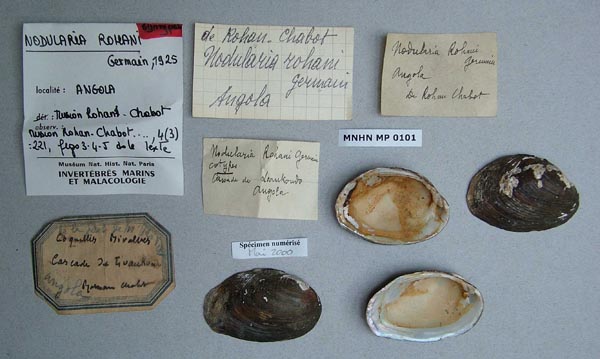 NODULARIA ROHANI
Germain, 1925
localité: ANGOLA
dét.: Mission Rohan-Chabot
observ.
Mission Rohan-Chabot...., 4(3)
:221, figs 3-4-5 dans le texte
Muséum Nat. Hist. Nat. Paris
INVERTÉBRÉS MARINS
ET MALACOLOGIE
de Rohan-Chabot
Nodularia rohani
germain
Angola
Nodularia Rohani
Germain
Angola
De Rohan Chabot
MNHN MP 0101
Nodularia Rohani Germain
cotypes
Cascade de
Angola
Spécimen numérisé
Mai 2000
Coquilles Bivalves
Cascade de
Angola
Rohan Chabot